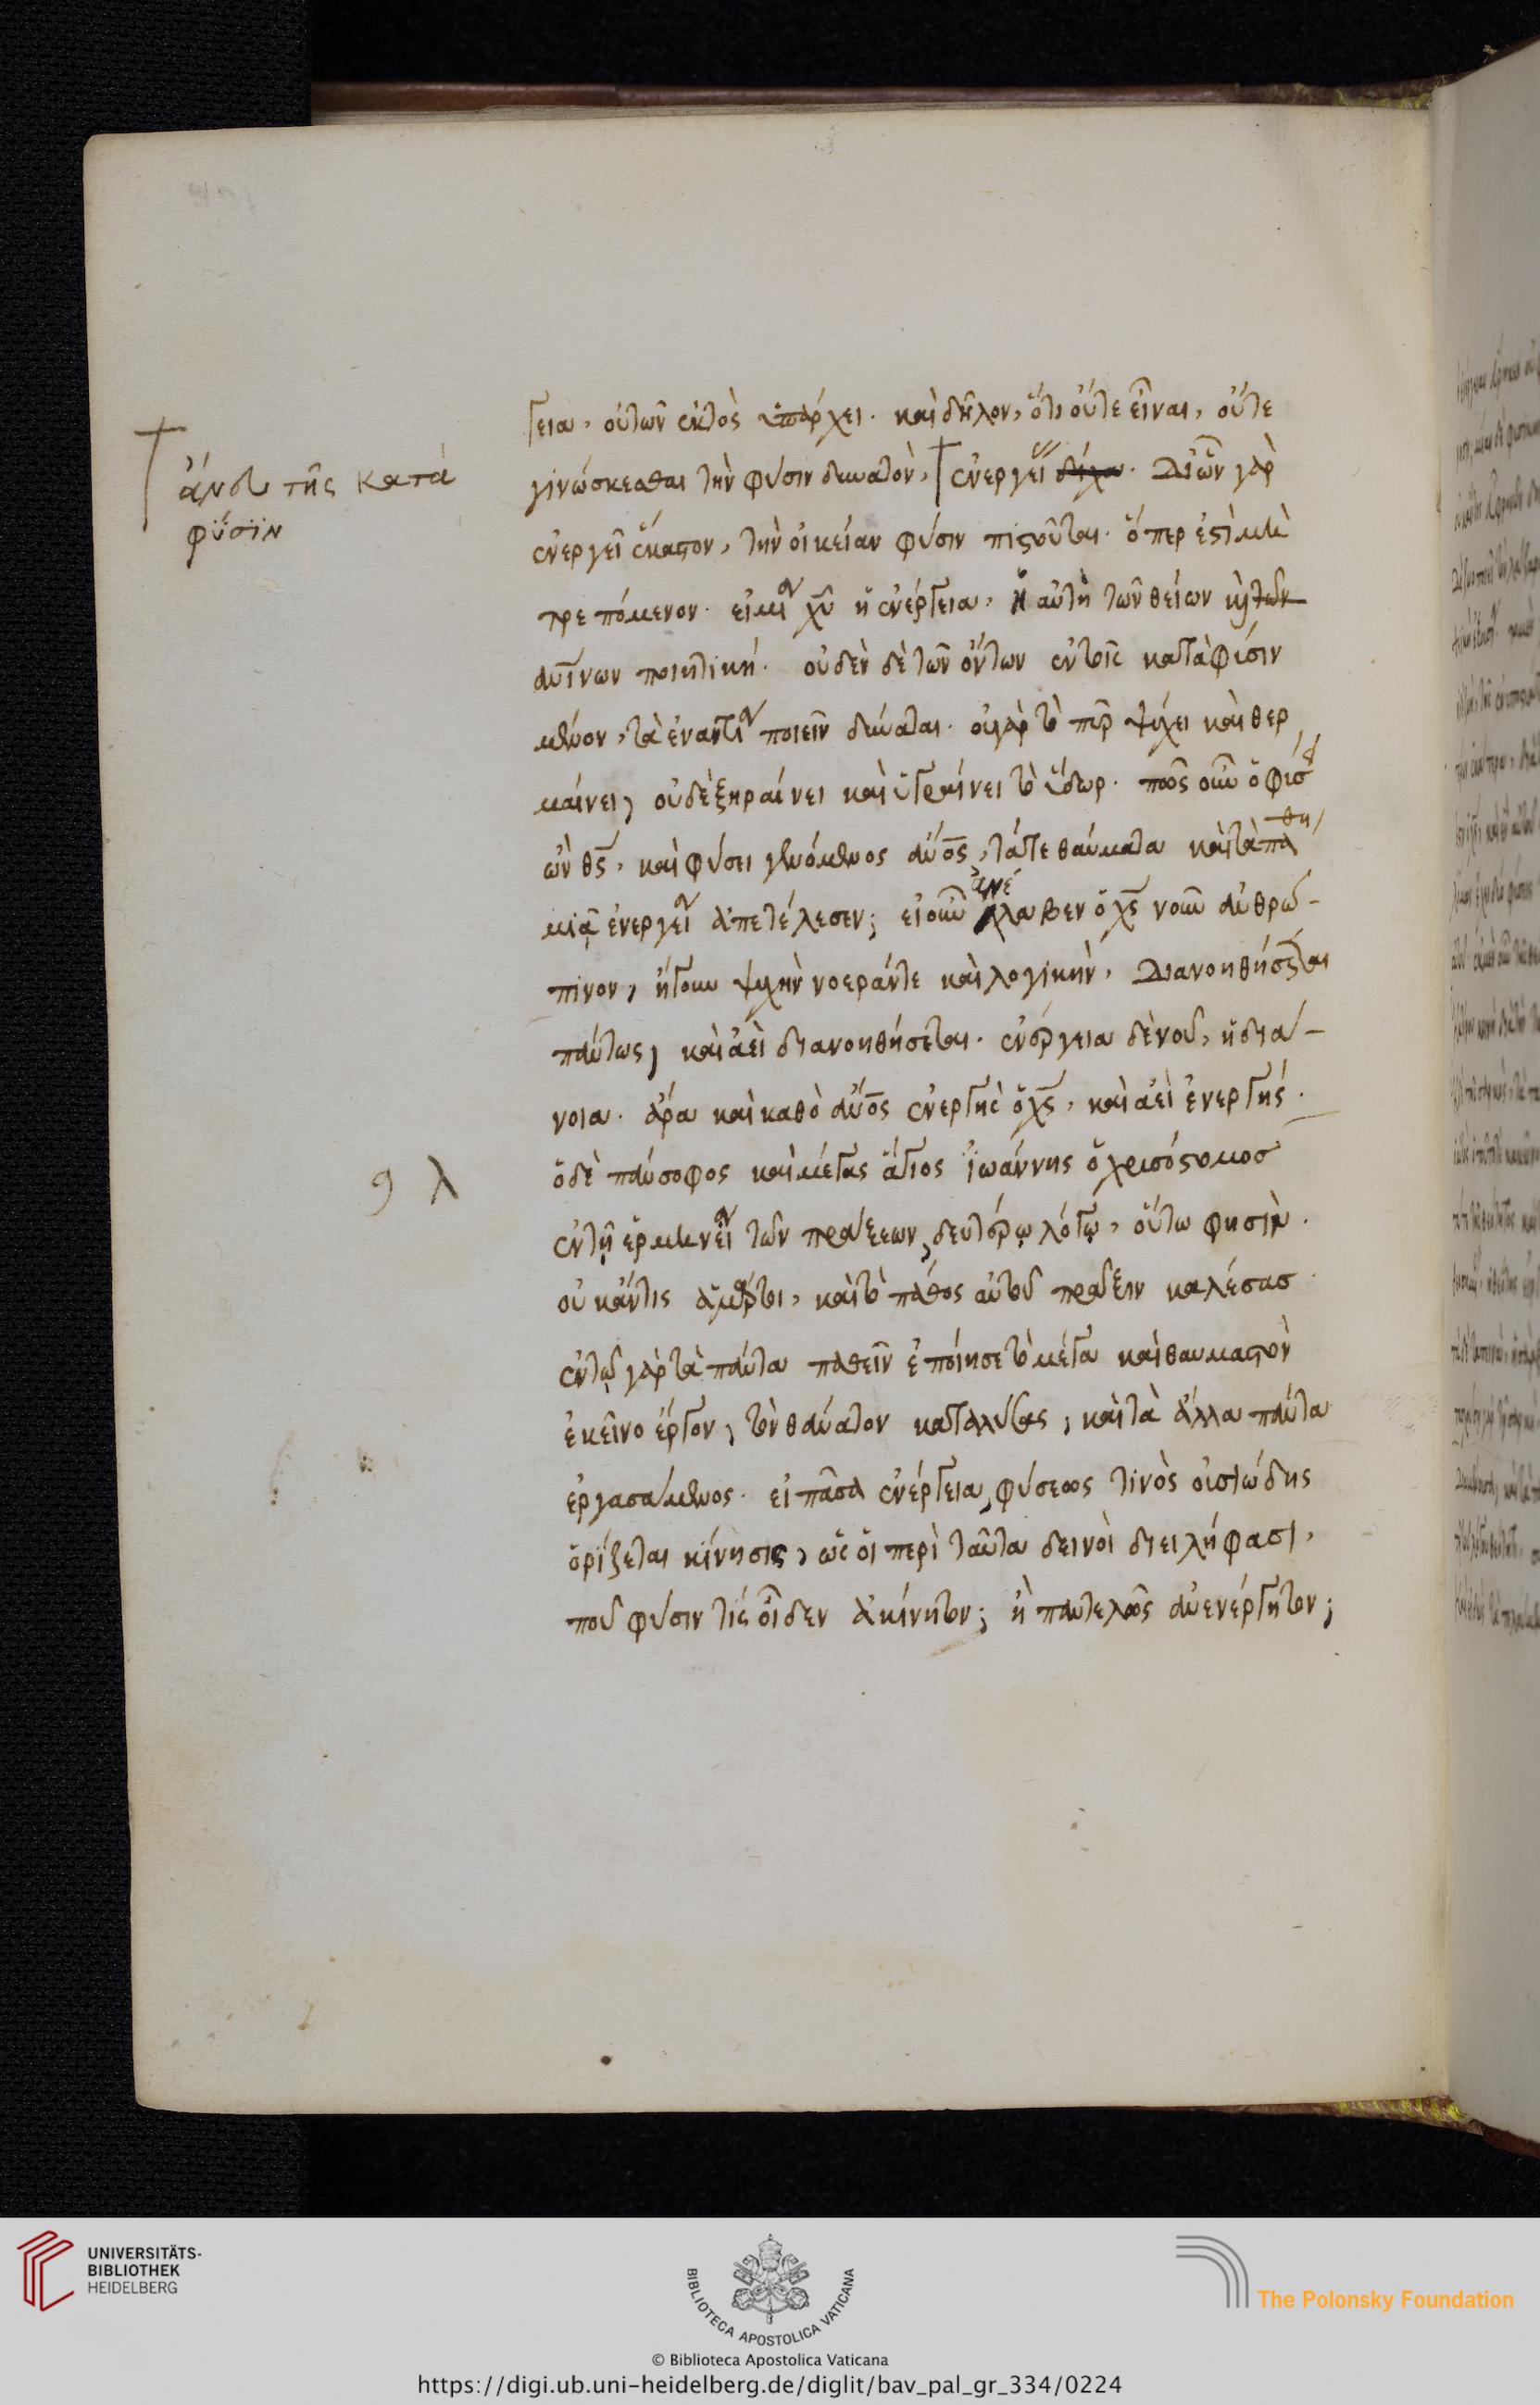 γεια, οὐ τῶν ἐκτὸς ὑπάρχει. καὶ δῆλον, ὅτι οὔτε εἶναι, οὔτε
γινώσκεσθαι τὴν φύσιν δυνατὸν, † ἐνεργεί δίχα. Δι' ὧν γὰρ
ἄνευ τῆς κατὰ
φύσιν
ἐνεργεῖ ἕκαστον, τὴν οἰκείαν φύσιν πιστοῦται. ὅπερ ἐστὶ μὴ
τρεπόμενον. εἰ μία χῦ ἡ ἐνέργεια, ἡ αὐτὴ τῶν θείων καὶ τῶν
ἀνίνων ποιητική. οὐδὲν δὲ τῶν ὄντων ἐν τοῖς κατὰ φύσιν
μένον, τὰ ἐναντία ποιεῖν δύναται. οὐ γὰρ τὸ πῦρ ψύχει καὶ θερ
μαίνει, οὐδὲ ξηραίνει καὶ ὑγραίνει τὸ ὕδωρ. πῶς οὖν ὁ φύσει
ὢν θς, καὶ φύσει γενόμενος ἄνος, τά τε θαύματα καὶ τὰ πάθη
μιᾷ ἐνεργεία ἀπετέλεσεν; εἰ οὖν ἀνέλαβεν ὁ χς νοῦν ἀνθρώ-
πινον, ἤγουν ψυχὴν νοεράν τε καὶ λογικὴν, Διανοηθήσεται
πάντως, καὶ ἀεὶ διανοηθήσεται. ἐνέργεια δὲ νοῦ, ἡ διά-
νοια. ἄρα καὶ καθὸ ἄνος ἐνεργὴς ὁ χς, καὶ ἀεὶ ἐνεργής.
ϟ λ
ὁ δὲ πάνσοφος καὶ μέγας ἅγιος ἰωάννης ὁ χρυσόστομος
ἐν τῇ ἑρμηνεία τῶν πράξεων, δευτέρῳ λόγῳ, οὕτω φησὶν.
οὐκ ἄν τις ἁμάρτοι, καὶ τὸ πάθος αὐτοῦ πρᾶξιν καλέσας
ἐν τῷ γὰρ τὰ πάντα παθεῖν ἐποίησε τὸ μέγα καὶ θαυμαστὸν
ἐκεῖνο ἔργον, τὸν θάνατον καταλύσας, καὶ τὰ ἄλλα πάντα
ἐργασάμενος. εἰ πᾶσα ἐνέργεια, φύσεως τινὸς οὐσιώδης
ὁρίζεται κίνησις, ὡς οἱ περὶ ταῦτα δεινοὶ διειλήφασι,
ποῦ φύσιν τίς οἶδεν ἀκίνητον; ἢ παντελῶς ἀνενέργητον;
UNIVERSITÄTS-
BIBLIOTHEK
HEIDELBERG
BIBLIOTECA APOSTOLICA VATICANA
The Polonsky Foundation
© Biblioteca Apostolica Vaticana
https://digi.ub.uni-heidelberg.de/diglit/bav_pal_gr_334/0224